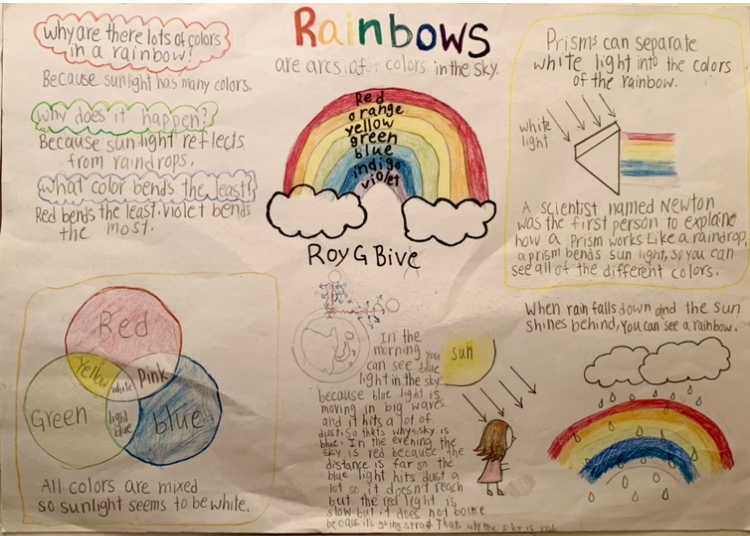 Rainbows
are arcs of colors in the sky.
why are there lots of colors
in a rainbow?
Because sunlight has many colors.
why does it happen?
Because sunlight reflects
from raindrops.
what color bends the least?
Red bends the least. violet bends
the most.
Red
orange
yellow
green
blue
indigo
violet
Roy G Bive
Prisms can separate
white light into the colors
of the rainbow.
white
light
A scientist named Newton
was the first person to explaine
how a prism works Like a raindrop,
a prism bends sun light, so you can
see all of the different colors.
Red
Yellow
white
Pink
Green
light
blue
blue
All colors are mixed
so sunlight seems to be white.
In the
morning you
can see blue
light in the sky
because blue light is
moving in big wave
and it hits a lot of
dust. So thats why sky is
blue. In the evening the
sky is red because the
distance is far so the
blue light hits dust a
lot so it doesn't reach
but the red light is
slow but it does not
because its going That's why the is red.
When rain falls down and the sun
shines behind, You can see a rainbow.
sun